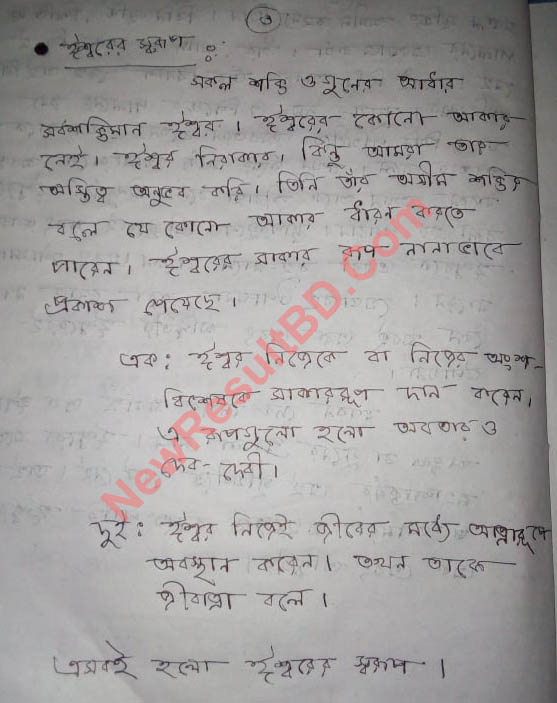 ৩
• ঈশ্বরের স্বরূপ :
সকল শক্তি ও গুনের আধার
সর্বশক্তিমান ঈশ্বর । ঈশ্বরের কোনো আকার
নেই । ঈশ্বর নিরাকার । কিন্তু আমরা তার
অস্তিত্ব অনুভব করি । তিনি তাঁর অসীম শক্তির
বলে যে কোনো আকার ধারন করতে
পারেন । ঈশ্বরের সাকার রূপ নানাভাবে
প্রকাশ পেয়েছে ।
এক : ঈশ্বর নিজেকে বা নিজের অংশ-
বিশেষকে সাকাররূপ দান করেন ।
এ রূপগুলো হলো অবতার ও
দেব-দেবী ।
দুই : ঈশ্বর নিজেই জীবের মধ্যে আত্মারূপে
অবস্থান করেন । তখন তাকে
জীবাত্মা বলে ।
এসবই হলো ঈশ্বরের স্বরূপ ।
NewResultBD.Com